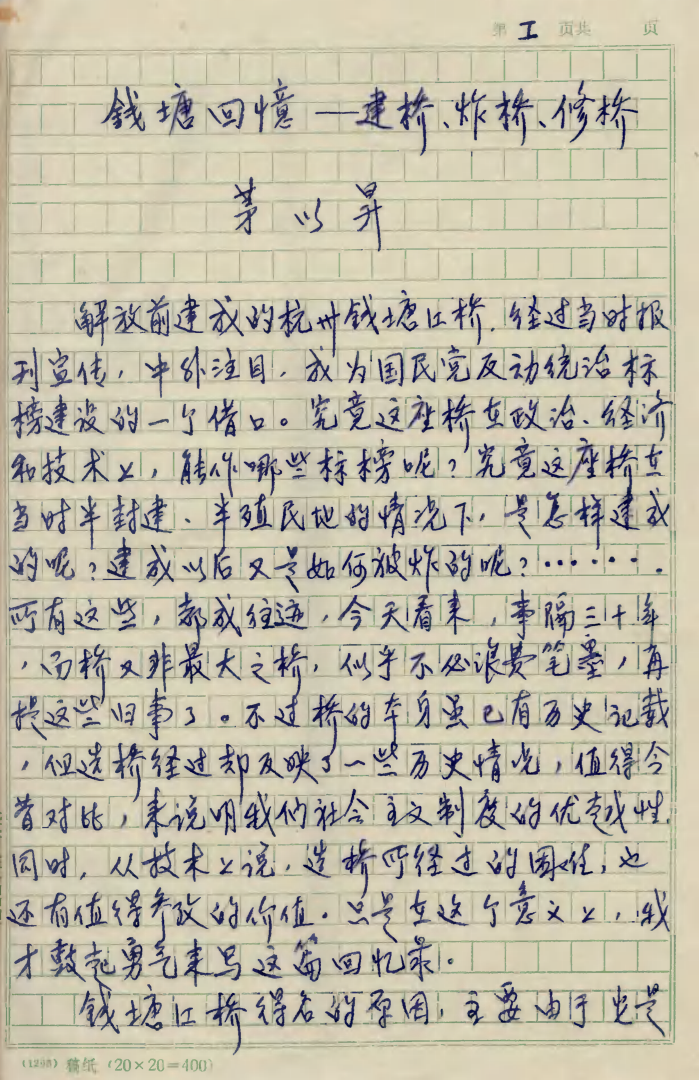 第 I 页共 页
钱塘回憶——建桥、炸桥、修桥
茅以昇
解放前建成的杭州钱塘江桥，经过当时报
刊宣传，中外注目，成为国民党反动统治标
榜建设的一个借口。究竟这座桥在政治、经济
和技术上，能作哪些标榜呢？究竟这座桥在
当时半封建、半殖民地的情况下，是怎样建成
的呢？建成以后又是如何被炸的呢？……．
所有这些，都成往迹，今天看来，事隔三十年
，而桥又非最大之桥，似乎不必浪费笔墨，再
提这些旧事了。不过桥的本身虽已有历史记载
，但造桥经过却反映了一些历史情况，值得今
昔对比，来说明我们社会主义制度的优越性，
同时，从技术上说，造桥所经过的困难，也
还有值得参考的价值。只是在这个意义上，我
才鼓起勇气来写这篇回忆录。
钱塘江桥得名的原因，主要由于它是
(1293) 稿纸 (20×20=400)